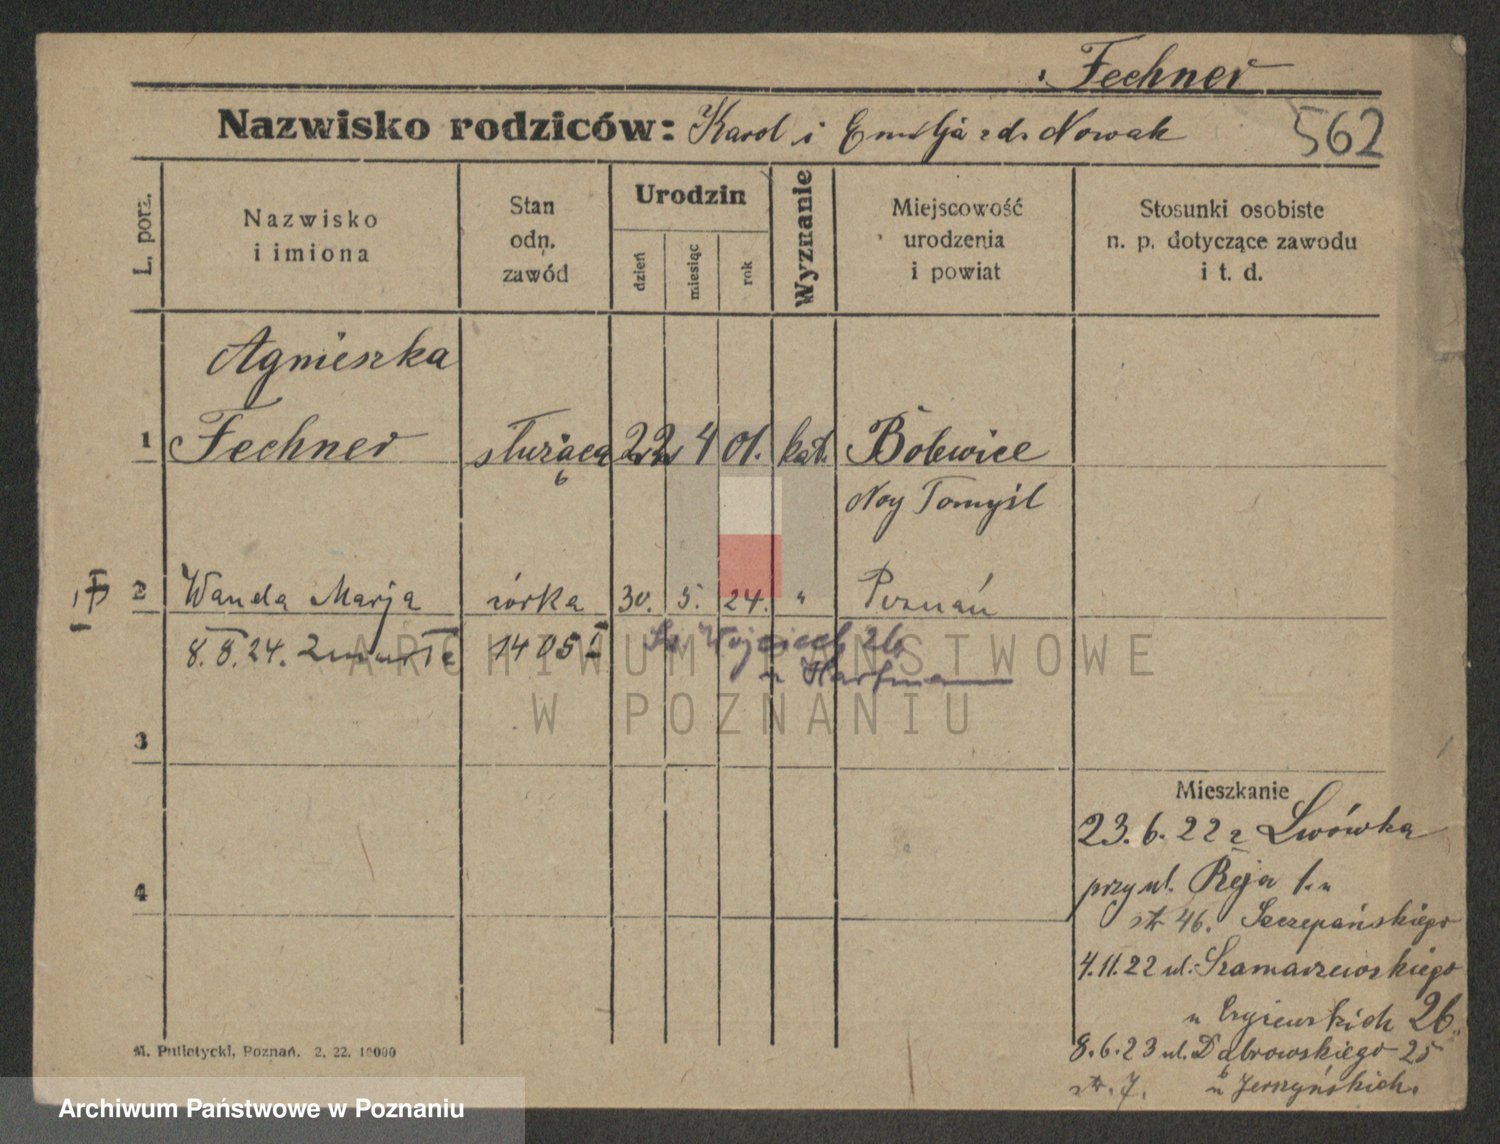 Fechner
Nazwisko rodziców: Karol i Emilja zd. Nowak
562
L. porz.
Nazwisko
i imiona
Stan
odn.
zawód
Urodzin
dzień
miesiąc
rok
Wyznanie
Miejscowość
urodzenia
i powiat
Stosunki osobiste
n. p. dotyczące zawodu
i t. d.
Agnieszka
1 Fechner służąca 22 4 01. kat. Bolewice
Noy Tomyśl
2 Wanda Marja córka 30. 5. 24. " Poznań
8.8.24. zmarła 1405 Wojciech 26
u Hartmann
3
Mieszkanie
23.6.22 z Lwówka
4 przy ul. Reja 1. u
str 46. Szczepańskiego
4.11.22 ul. Szamarzewskiego
u 26.
8.6.23 ul. Dąbrowskiego 25
str. 7. u Jerzyńskich.
M. Putiatycki, Poznań. 2. 22. 10000
ARCHIWUM PAŃSTWOWE
W POZNANIU
Archiwum Państwowe w Poznaniu